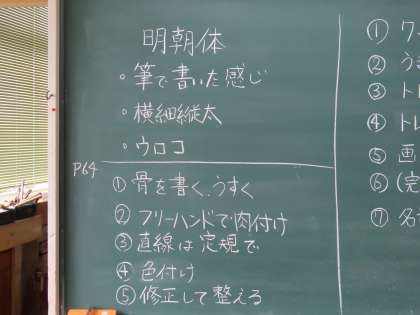 明朝体
・筆で書いた感じ
・横細縦太
・ウロコ
P64
①骨を書く、うすく
②フリーハンドで肉付け
③直線は定規で
④色付け
⑤修正して整える
①ワー
②うす
③トレ
④トレ
⑤画
⑥(完
⑦名